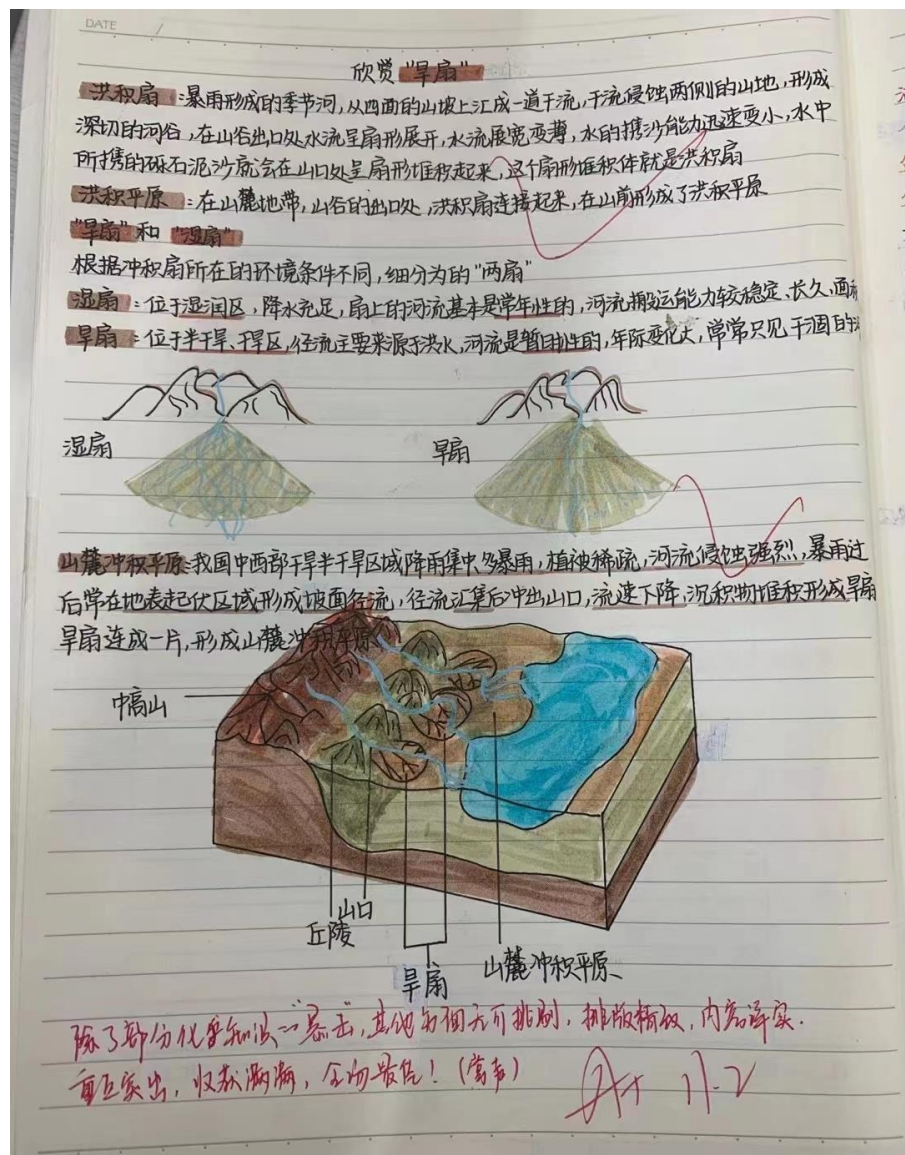 DATE /
欣赏"旱扇"
洪积扇:暴雨形成的季节河,从四面的山坡上汇成一道干流,干流侵蚀两侧的山地,形成
深切的河谷,在山谷出口处水流呈扇形展开,水流展宽变薄,水的携沙能力迅速变小,水中
所携的砾石泥沙就会在山口处呈扇形堆积起来,这个扇形堆积体就是洪积扇
洪积平原:在山麓地带,山谷的出口处,洪积扇连接起来,在山前形成了洪积平原
"旱扇"和"湿扇"
根据冲积扇所在的环境条件不同,细分为的"两扇"
湿扇:位于湿润区,降水充足,扇上的河流基本是常年性的,河流搬运能力较稳定、长久,面积
旱扇:位于半干旱、干旱区,径流主要来源于洪水,河流是暂时性的,年际变化大,常常只见干涸的
湿扇
旱扇
山麓冲积平原:我国中西部干旱半干旱区域降雨集中多暴雨,植被稀疏,河流侵蚀强烈,暴雨过
后常在地表起伏区域形成坡面径流,径流汇集后冲出山口,流速下降,沉积物堆积形成旱扇
旱扇连成一片,形成山麓冲积平原
中高山
山口
丘陵
旱扇
山麓冲积平原
除了部分化学知识"暴击",其他方面无可挑剔,排版精致,内容详实.
重点突出,收获满满,全场最佳!(掌声)
A++ 11-2